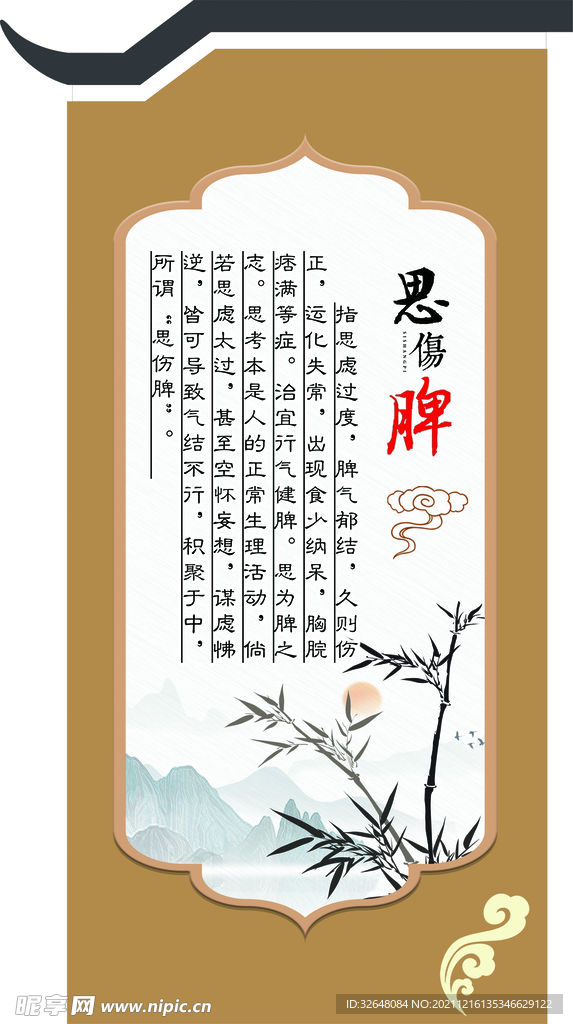 思傷脾
SISHANGPI
指思虑过度，脾气郁结，久则伤
正，运化失常，出现食少纳呆，胸脘
痞满等症。治宜行气健脾。思为脾之
志。思考本是人的正常生理活动，倘
若思虑太过，甚至空怀妄想，谋虑怫
逆，皆可导致气结不行，积聚于中，
所谓“思伤脾”。
昵享网 www.nipic.cn
ID:32648084 NO:20211216135346629122